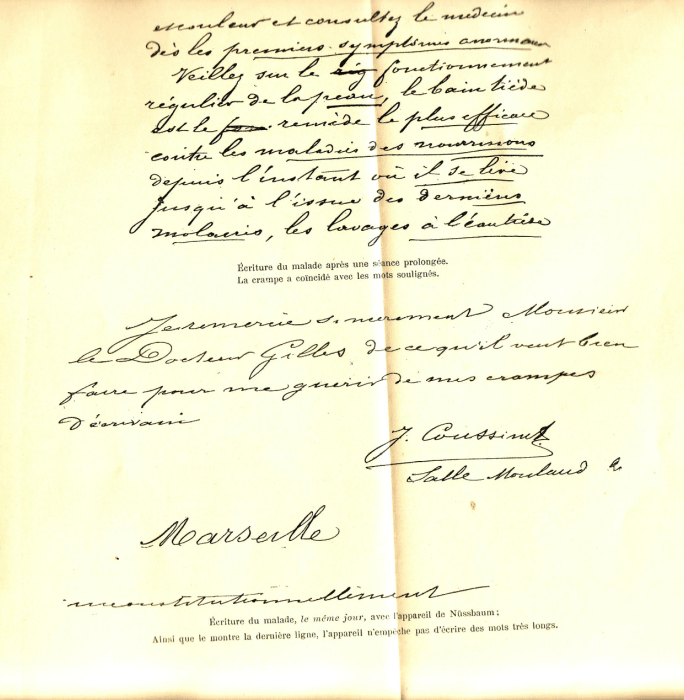 et consultez le médecin
dès les premiers symptômes anormaux
Veillez sur le rig fonctionnement
régulier de la peau, le bain tiède
est le remède le plus efficace
contre les maladies des nourrissons
depuis l'instant où il se lève
jusqu'à l'issue des derniers
molaires, les lavages à l'eau
Écriture du malade après une séance prolongée.
La crampe a coïncidé avec les mots soulignés.
Je remercie sincèrement Monsieur
le Docteur Gilles de ce qu'il veut bien
faire pour me guérir de mes crampes
d'écrivain
J. Coussinet
Salle Moulaud
Marseille
inconstitutionnellement
Écriture du malade, le même jour, avec l'appareil de Nüssbaum ;
Ainsi que le montre la dernière ligne, l'appareil n'empêche pas d'écrire des mots très longs.